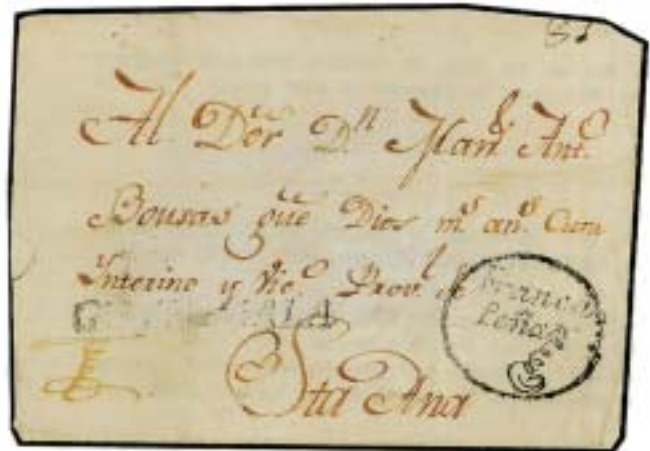 Al Dor Dn Man.l Ant.o
Bousas que Dios m.s an.s Cura
Interino y Vic.o Prov.l de
GUATEMALA
Franco
Peña
Sta Ana